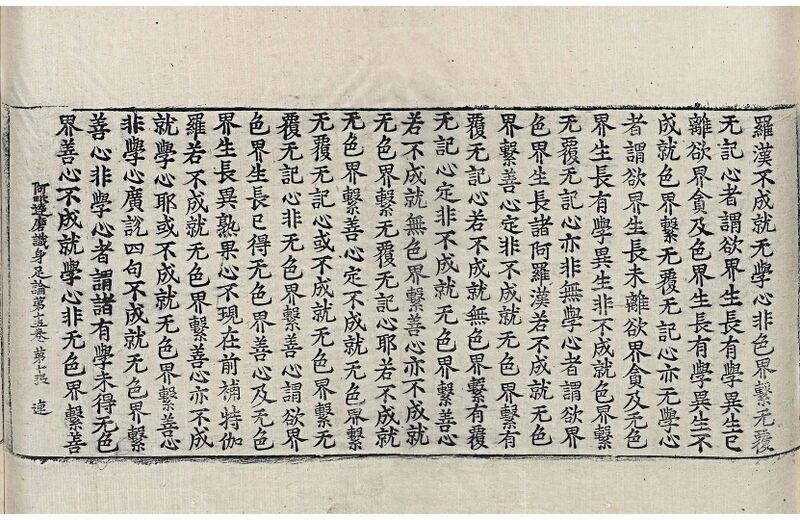 羅漢不成就无學心非色界繫无覆
无記心者謂欲界生長有學異生已
離欲界貪及色界生長有學異生不
成就色界繫无覆无記心亦无學心
者謂欲界生長未離欲界貪及无色
界生長有學異生非不成就色界繫
无覆无記心亦非無學心者謂欲界
色界生長諸阿羅漢若不成就无色
界繫善心定非不成就无色界繫有
覆无記心若不成就無色界繫有覆
无記心定非不成就无色界繫善心
若不成就無色界繫善心亦不成就
无色界繫无覆无記心耶若不成就
无色界繫善心定不成就无色界繫
无覆无記心或不成就无色界繫无
覆无記心非无色界繫善心謂欲界
色界生長已得无色界善心及无色
界生長異熟果心不現在前補特伽
羅若不成就无色界繫善心亦不成
就學心耶或不成就无色界繫善心
非學心廣說四句不成就无色界繫
善心非學心者謂諸有學未得无色
界善心不成就學心非无色界繫善
阿毗達磨識身足論第十五卷 第七張 連